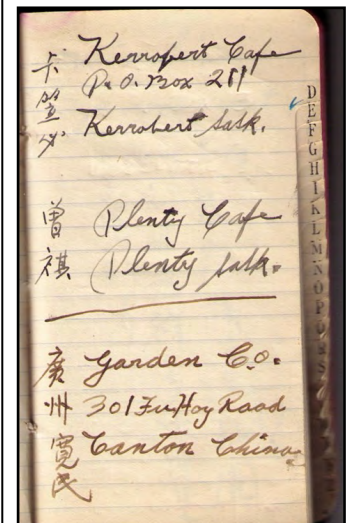 Kerrobert Cafe
P.O. Box 211
Kerrobert Sask.
曾祺
Plenty Cafe
Plenty Sask.
廣州寬民
Garden Co.
301 Fu Hoy Road
Canton China
D
E
F
G
H
I
K
L
M
N
O
P
Q
R
S